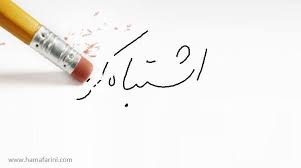 اشتباه
www.hamafarini.com